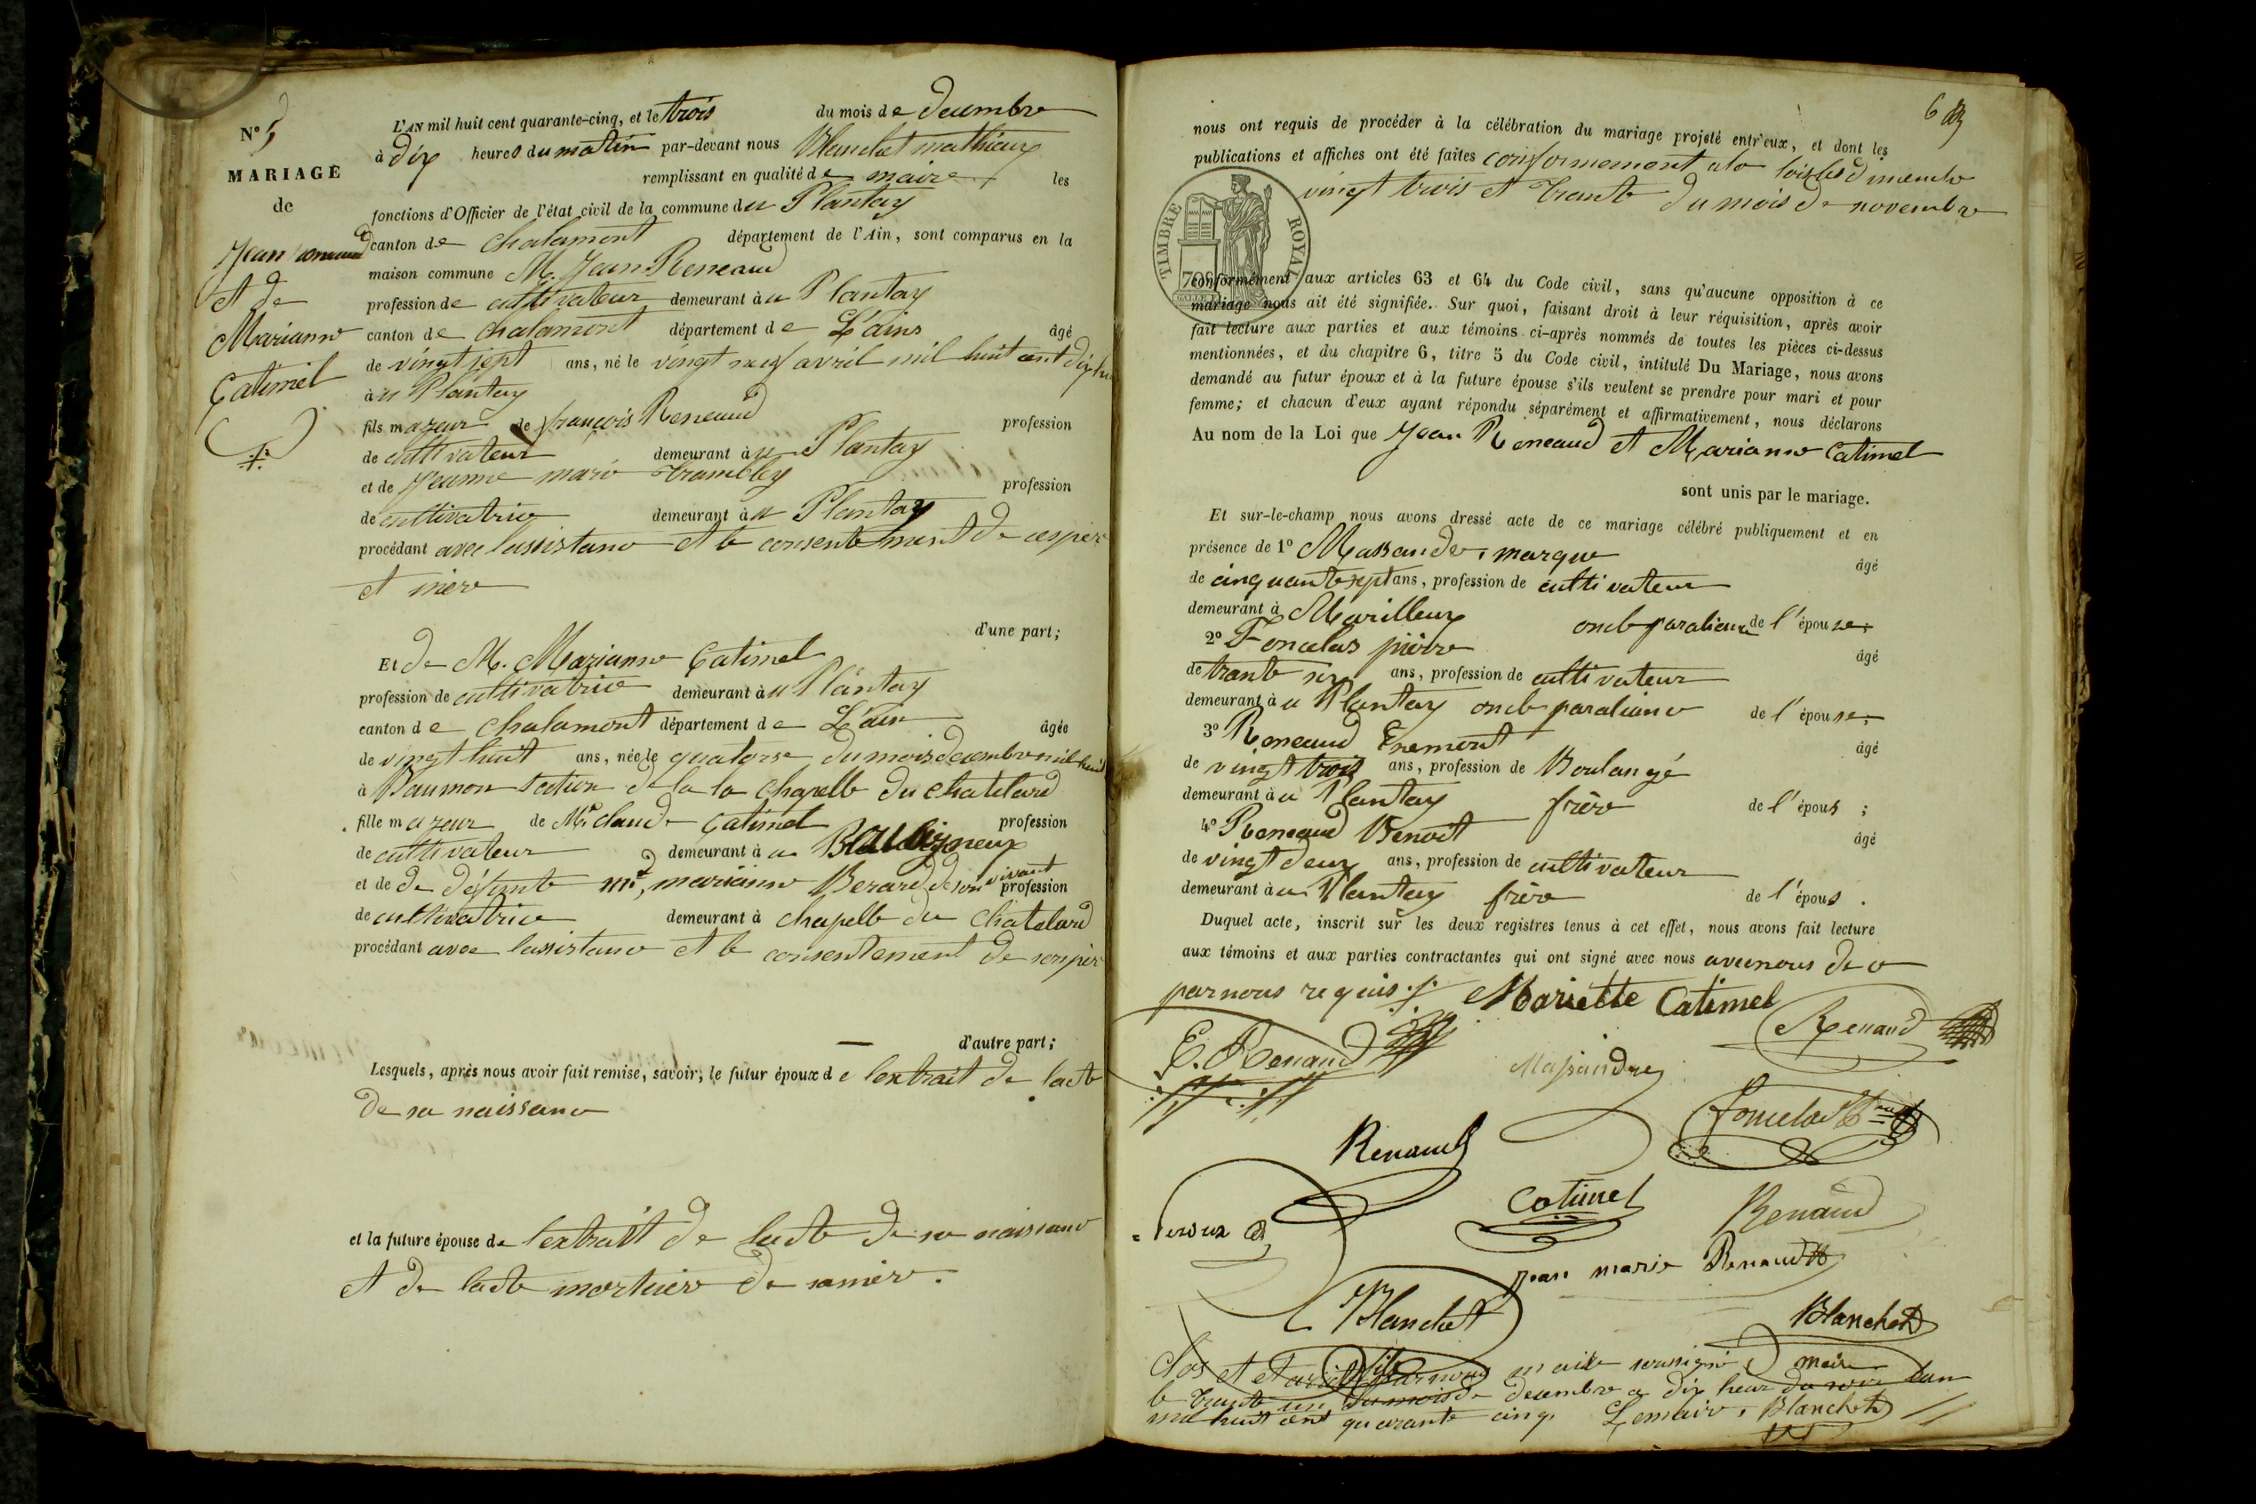 N° 5
MARIAGE
de
Jean Reneaud
et de
Marianne
Catimel
L'AN mil huit cent quarante-cinq, et le trois du mois de decembre
à dix heures du matin par-devant nous Blanchet mathieux
remplissant en qualité de maire les
fonctions d'Officier de l'état civil de la commune du Plantay
canton de chalamont département de l'Ain, sont comparus en la
maison commune M. Jean Reneaud
profession de cultivateur demeurant àu Plantay
canton de chalamont département de L'ains âgé
de vingt sept ans, né le vingt neuf avril mil huit cent dix hu
àu Plantay
fils mazeur de françois Reneaud profession
de cultivateur demeurant àu Plantay
et de Jeanne marie trambley profession
de cultivatrice demeurant àu Plantay
procédant avec lassistance et le consentement de ces père
et mère
d'une part;
Et de M. Marianne Catimel
profession de cultivatrice demeurant àu Plantay
canton de chalamont département de L'ain âgée
de vingt huit ans, née le quatorze du mois decembre mil huit
à Baumon section de la la chapelle du chatelard
fille mazeur de Mr. claude Catimel profession
de cultivateur demeurant à a Bouligneux
et de de défunte me, marianne Berard de son vivant profession
de cultivatrice demeurant à chapelle du Chatelard
procédant avec lassistance et le consentement de son pèr
d'autre part;
Lesquels, après nous avoir fait remise, savoir; le futur époux de lextrait de lacte
de sa naissance
et la future épouse de lextrait de lacte de sa naissance
et de lacte mortuère de samère.
6
nous ont requis de procéder à la célébration du mariage projeté entr'eux, et dont les
publications et affiches ont été faites conformement a la loi les dimanche
vingt trois et trante du mois de novembre
TIMBRE ROYAL
70c
conformément aux articles 63 et 64 du Code civil, sans qu'aucune opposition à ce
mariage nous ait été signifiée. Sur quoi, faisant droit à leur réquisition, après avoir
fait lecture aux parties et aux témoins ci-après nommés de toutes les pièces ci-dessus
mentionnées, et du chapitre 6, titre 5 du Code civil, intitulé Du Mariage, nous avons
demandé au futur époux et à la future épouse s'ils veulent se prendre pour mari et pour
femme; et chacun d'eux ayant répondu séparément et affirmativement, nous déclarons
Au nom de la Loi que Jean Reneaud et Marianne Catimel
sont unis par le mariage.
Et sur-le-champ nous avons dressé acte de ce mariage célébré publiquement et en
présence de 1° Massandre, marque âgé
de cinquante sept ans, profession de cultivateur
demeurant à Marilleux oncle paraliance de l'épouse;
2° Foncelas pière âgé
de trante six ans, profession de cultivateur
demeurant àu Plantay oncle paraliance de l'épouse;
3° Reneaud Enemont âgé
de vingt trois ans, profession de Boulangé
demeurant àu Plantay frère de l'épous ;
4° Reneaud Benoit âgé
de vingt deux ans, profession de cultivateur
demeurant àu Plantay frère de l'épous .
Duquel acte, inscrit sur les deux registres tenus à cet effet, nous avons fait lecture
aux témoins et aux parties contractantes qui ont signé avec nous avecnous de ce
parnous requis Mariette Catimel
E. Renaud Renaud
Massandre
Renaud
Catimel Renaud
jean marie Renaud
Blanchet Blanchet
fils maire
Clos et et arrété par nous maire soussigné
le trante un du mois de decembre a dix heur du soire lan
mil huit cent quarante cinq Lemaire, Blanchet